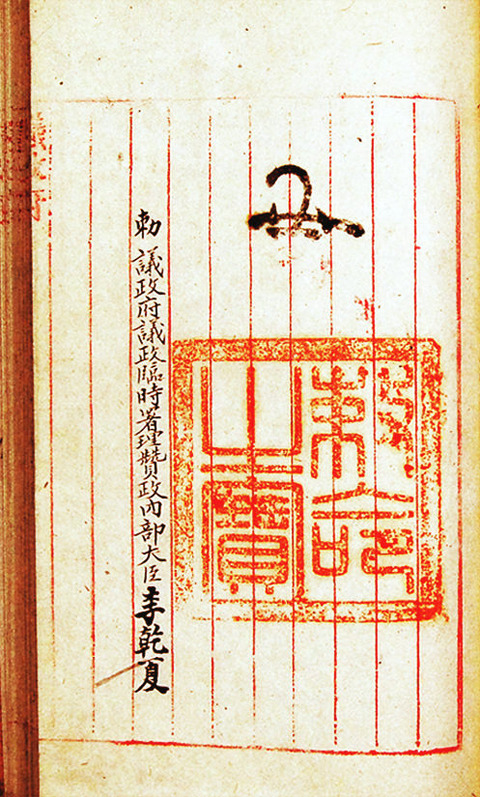 敕命
之寶
勅 議政府議政臨時署理贊政內部大臣 李乾夏